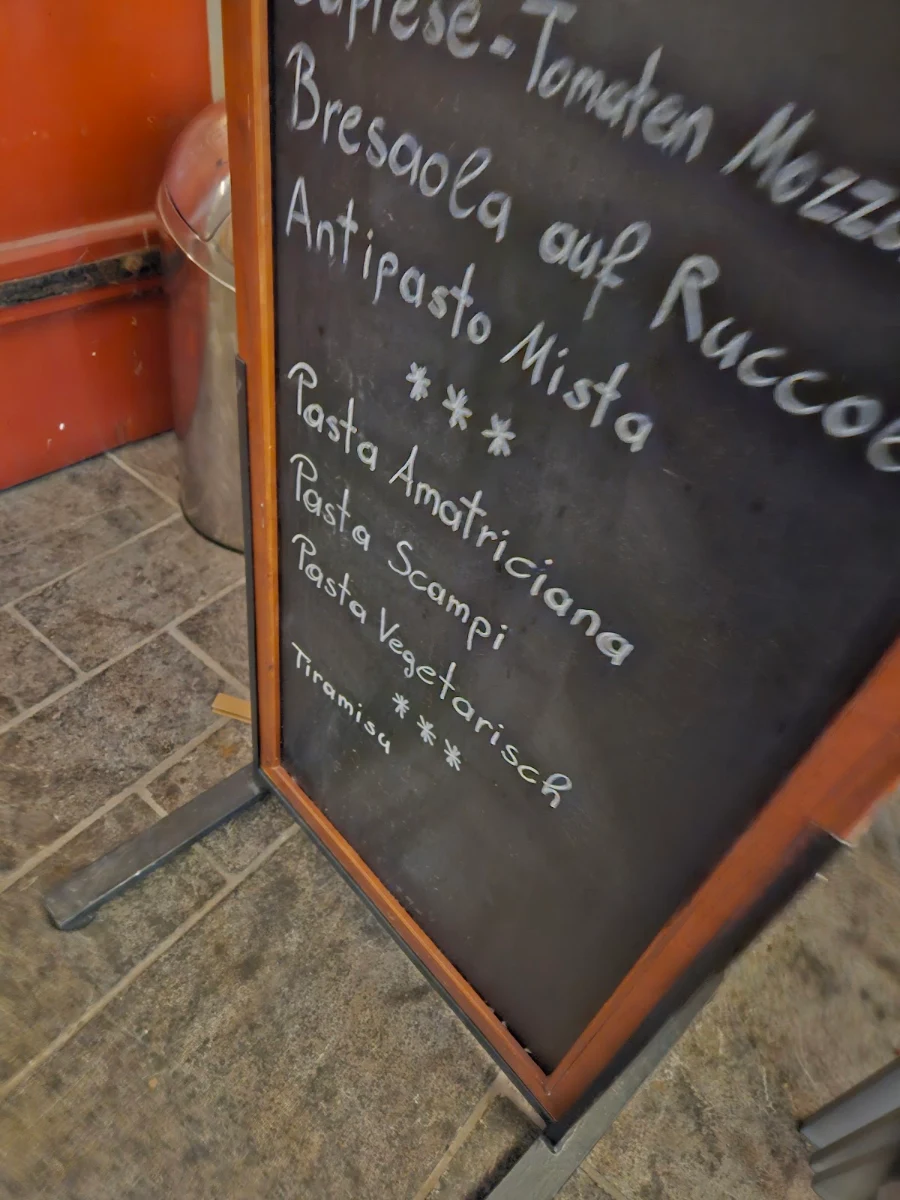 Caprese-Tomaten Mozza
Bresaola auf Ruccoe
Antipasto Mista
***
Pasta Amatriciana
Pasta Scampi
Pasta Vegetarisch
***
Tiramisu